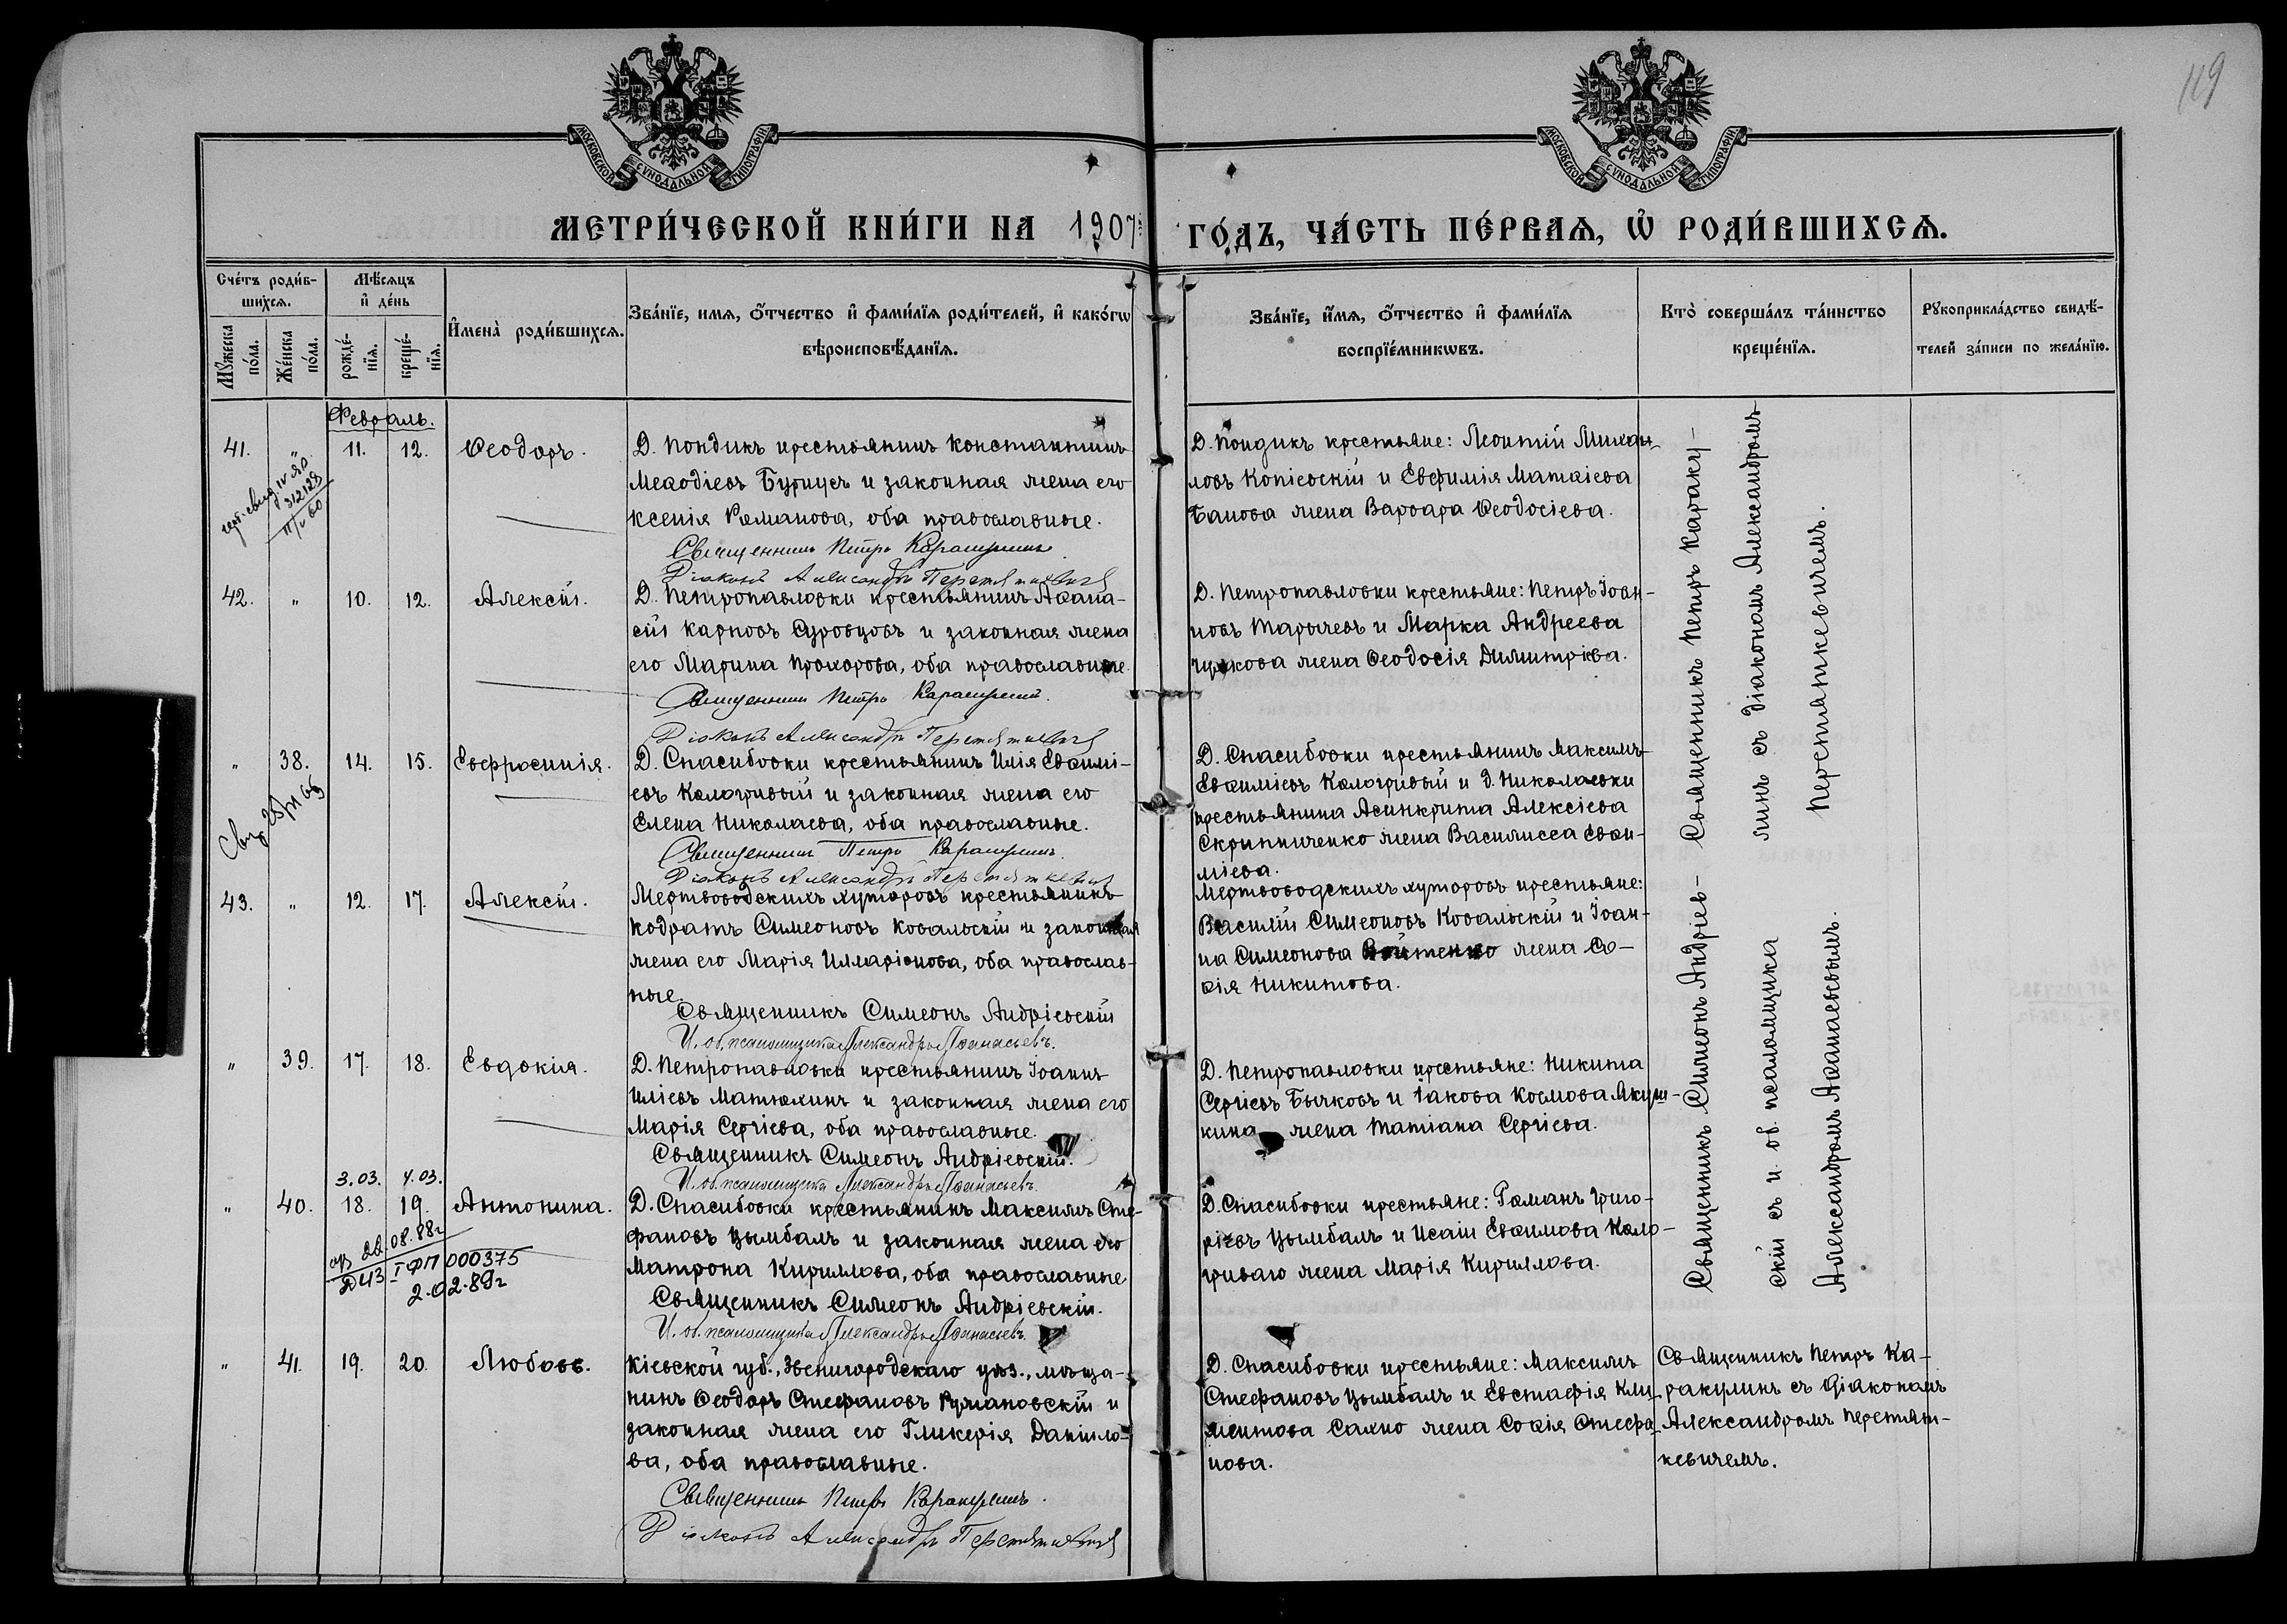 119
МОСКОВСКОЙ СѴНОДАЛЬНОЙ ТИПОГРАФІИ
МОСКОВСКОЙ СѴНОДАЛЬНОЙ ТИПОГРАФІИ
МЕТРИ́ЧЕСКОЙ КНИ́ГИ НА 1907й ГО́ДЪ, ЧА́СТЬ ПЕ́РВАѦ, Ѡ РОДИ́ВШИХСѦ.
Сче́тъ роди́в-
шихсѧ.
Мѣ́сѧцъ
и де́нь
Мꙋ́жеска по́ла.
Же́нска по́ла.
рожде́-
нїѧ.
креще́-
нїѧ.
И҆мена̀ роди́вшихсѧ.
Зва́нїе, имѧ, ѻ҆́тчество и҆ фами́лїѧ роди́телей, и҆ како́гѡ
вѣроисповѣ́данїѧ.
Зва́нїе, и҆́мѧ, ѻ҆́тчество и҆ фами́лїѧ
воспрїе́мникѡвъ.
Кто̀ соверша́лъ та́инство
креще́нїѧ.
Рꙋкоприкла́дство свидѣ́-
телей за́писи по жела́нїю.
Февраль.
41. " 11. 12. Ѳеодоръ.
312128
Д. Кондикъ крестьянинъ Константинъ
Меѳодіевъ Бурнусъ и законная жена его
Ксенія Романова, оба православные.
Священникъ Петръ Каракулинъ
Діаконъ Александръ Перетяткевичъ
Д. Кондикъ крестьяне: Леонтій Михаи-
ловъ Копіевскій и Евфимія Матѳіева
Банова жена Варвара Ѳеодосіева.
42. " 10. 12. Алексій.
Д. Петропавловки крестьянинъ Аѳана-
сій Карповъ Суровцовъ и законная жена
его Марина Прохорова, оба православные.
Священникъ Петръ Каракулинъ
Діаконъ Александръ Перетяткевичъ
Д. Петропавловки крестьяне: Петръ Іоан-
новъ Тарычевъ и Марка Андреева
жена Ѳеодосія Димитріева.
" 38. 14. 15. Евфросинія.
Д. Спасибовки крестьянинъ Илія Евѳимі-
евъ Кологривый и законная жена его
Елена Николаева, оба православные.
Священникъ Петръ Каракулинъ
Діаконъ Александръ Перетяткевичъ
Д. Спасибовки крестьянинъ Максимъ
Евѳиміевъ Кологривый и д. Николаевки
крестьянина Асинкрита Алексіева
Скрипниченко жена Василисса Евѳи-
міева.
43. " 12. 17. Алексій.
Мертвоводскихъ хуторовъ крестьянинъ
Кодратъ Симеоновъ Ковальскій и законная
жена его Марія Илларіонова, оба православ-
ные.
Священникъ Симеонъ Андріевскій
И. об. псаломщика Александръ Аѳанасьевъ.
Мертвоводскихъ хуторовъ крестьяне:
Василій Симеоновъ Ковальскій и Іоан-
на Симеонова Войтенко жена Со-
ѳія Никитова.
" 39. 17. 18. Евдокія.
Д. Петропавловки крестьянинъ Іоаннъ
Иліевъ Матюхинъ и законная жена его
Марія Сергіева, оба православные.
Священникъ Симеонъ Андріевскій.
И. об. псаломщика Александръ Аѳанасьевъ.
Д. Петропавловки крестьяне: Никита
Сергіевъ Бычковъ и Іакова Космова Якуш-
кина жена Татіана Сергіева.
3.03. 4.03.
" 40. 18. 19. Антонина.
22.08.88г
I ФП 000375
2.02.89г
Д. Спасибовки крестьянинъ Максимъ Сте-
фановъ Цымбалъ и законная жена его
Матрона Кириллова, оба православные
Священникъ Симеонъ Андріевскій.
И. об. псаломщика Александръ Аѳанасьевъ.
Д. Спасибовки крестьяне: Романъ Григо-
ріевъ Цымбалъ и Исаіи Евѳимова Коло-
гриваго жена Марія Кириллова.
" 41. 19. 20. Любовь.
Кіевской губ., Звенигородскаго уѣз., мѣща-
нинъ Ѳеодоръ Стефановъ Ружановскій и
законная жена его Гликерія Даніило-
ва, оба православные.
Священникъ Петръ Каракулинъ.
Діаконъ Александръ Перетяткевичъ
Д. Спасибовки крестьяне: Максимъ
Стефановъ Цымбалъ и Евстафія Кли-
ментова Сахно жена Софія Стефа-
нова.
Священникъ Петръ Караку-
линъ съ діакономъ Александромъ
Перетяткевичемъ.
Священникъ Симеонъ Андріев-
скій съ и. об. псаломщика
Александромъ Аѳанасьевымъ.
Священникъ Петръ Ка-
ракулинъ съ діакономъ
Александромъ Перетят-
кевичемъ.